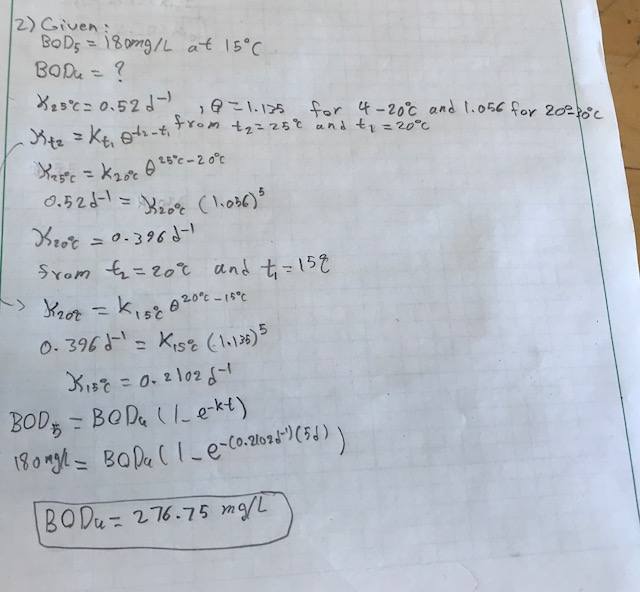 2) Given:
BOD5 = 180mg/L at 15°C
BODu = ?
K25°C = 0.52 d-1 , θ = 1.135 for 4-20°C and 1.056 for 20°-30°C
Kt2 = Kt1 θ^t2-t1 from t2 = 25°C and t1 = 20°C
K25°C = K20°C θ^25°C-20°C
0.52 d-1 = K20°C (1.056)^5
K20°C = 0.396 d-1
from t2 = 20°C and t1 = 15°C
K20°C = K15°C θ^20°C-15°C
0.396 d-1 = K15°C (1.135)^5
K15°C = 0.2102 d-1
BOD5 = BODu (1-e^-kt)
180mg/L = BODu (1-e^-(0.2102d-1)(5d))
BODu = 276.75 mg/L